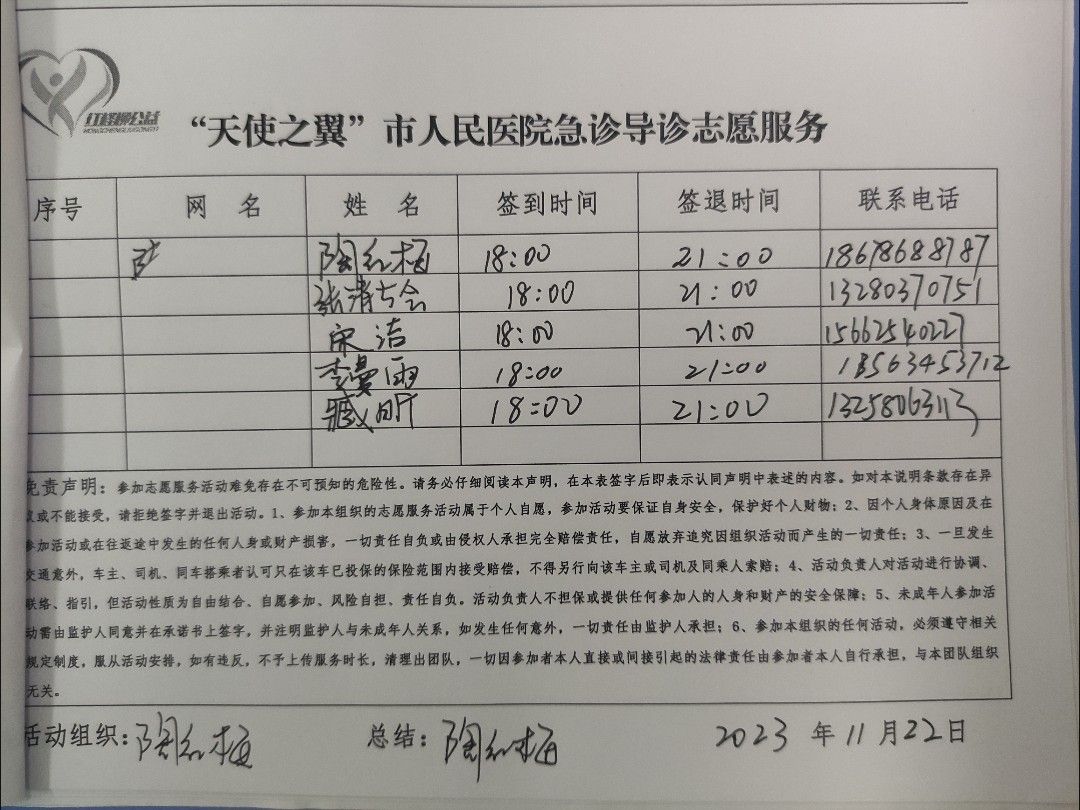 红橙柳公益
“天使之翼”市人民医院急诊导诊志愿服务
序号 网 名 姓 名 签到时间 签退时间 联系电话
陶红梅 18:00 21:00 18678688787
张清会 18:00 21:00 13280370751
宋洁 18:00 21:00 15662540227
李曼雨 18:00 21:00 13563453712
臧昕 18:00 21:00 13258063113
免责声明：参加志愿服务活动难免存在不可预知的危险性。请务必仔细阅读本声明，在本表签字后即表示认同声明中表述的内容。如对本说明条款存在异
议或不能接受，请拒绝签字并退出活动。1、参加本组织的志愿服务活动属于个人自愿，参加活动要保证自身安全，保护好个人财物；2、因个人身体原因及在
参加活动或在往返途中发生的任何人身或财产损害，一切责任自负或由侵权人承担完全赔偿责任，自愿放弃追究因组织活动而产生的一切责任；3、一旦发生
交通意外，车主、司机、同车搭乘者认可只在该车已投保的保险范围内接受赔偿，不得另行向该车主或司机及同乘人索赔；4、活动负责人对活动进行协调、
联络、指引，但活动性质为自由结合、自愿参加、风险自担、责任自负。活动负责人不担保或提供任何参加人的人身和财产的安全保障；5、未成年人参加活
动需由监护人同意并在承诺书上签字，并注明监护人与未成年人关系，如发生任何意外，一切责任由监护人承担；6、参加本组织的任何活动，必须遵守相关
规定制度，服从活动安排，如有违反，不予上传服务时长，清理出团队，一切因参加者本人直接或间接引起的法律责任由参加者本人自行承担，与本团队组织
无关。
活动组织：陶红梅 总结：陶红梅 2023 年 11 月 22 日